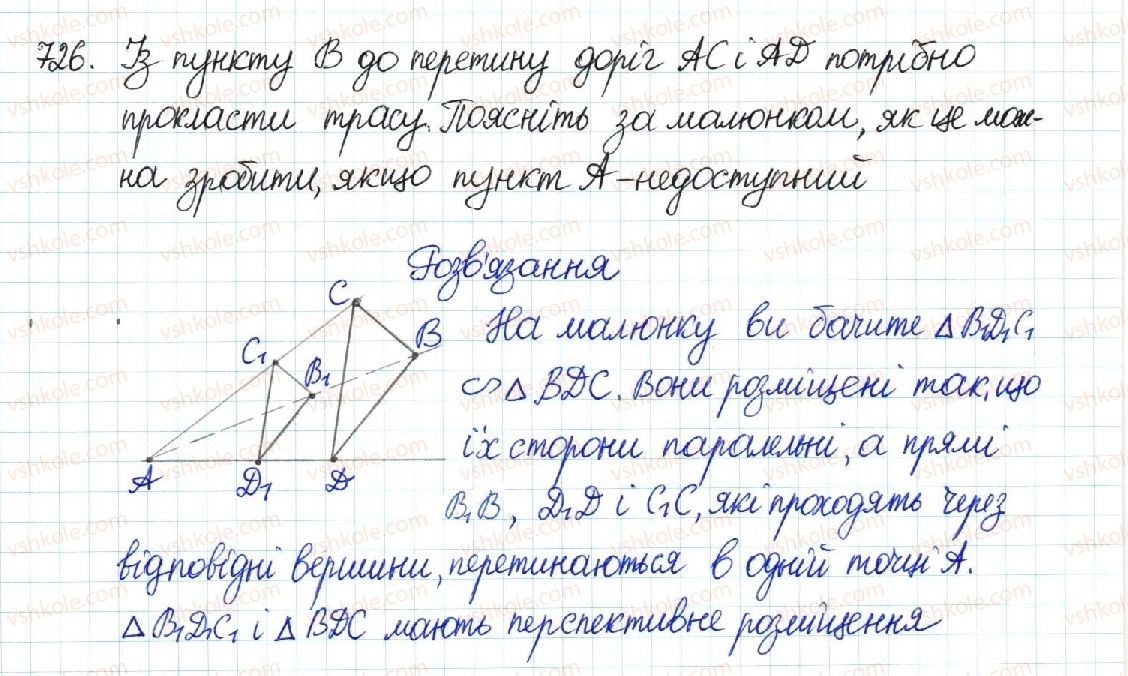 726. Із пункту В до перетину доріг АС і АD потрібно
прокласти трасу. Поясніть за малюнком, як це мож-
на зробити, якщо пункт А – недоступний
Розв'язання
C
C₁
B₁
B
A
D₁
D
На малюнку ви бачите △ B₁D₁C₁
∽ △ BDC. Вони розміщені так, що
їх сторони паралельні, а прямі
B₁B, D₁D і C₁C, які проходять через
відповідні вершини, перетинаються в одній точці А.
△ B₁D₁C₁ і △ BDC мають перспективне розміщення
vshkole.com